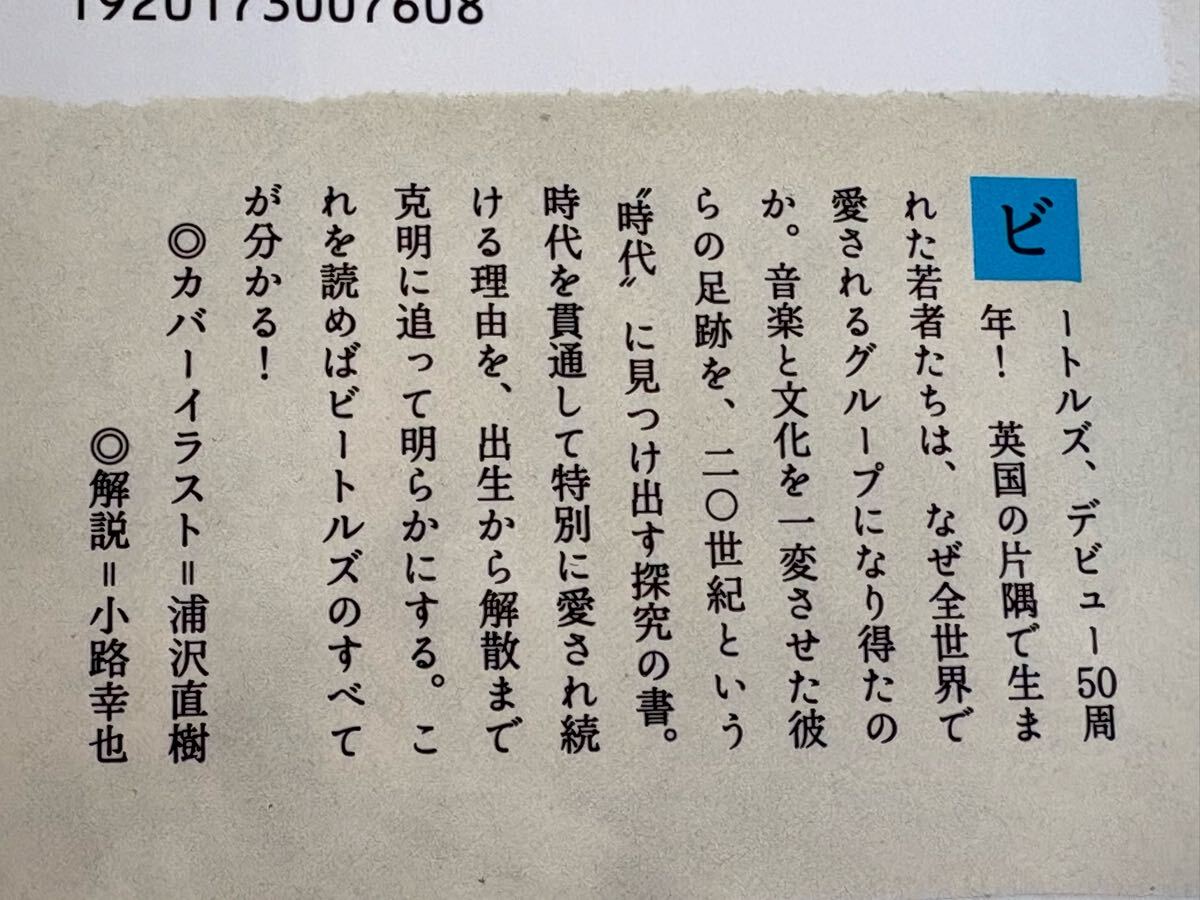 1920173007608
ビートルズ、デビュー50周
年！　英国の片隅で生ま
れた若者たちは、なぜ全世界で
愛されるグループになり得たの
か。音楽と文化を一変させた彼
らの足跡を、二〇世紀という
〝時代〟に見つけ出す探究の書。
時代を貫通して特別に愛され続
ける理由を、出生から解散まで
克明に追って明らかにする。こ
れを読めばビートルズのすべて
が分かる！
◎カバーイラスト＝浦沢直樹
◎解説＝小路幸也